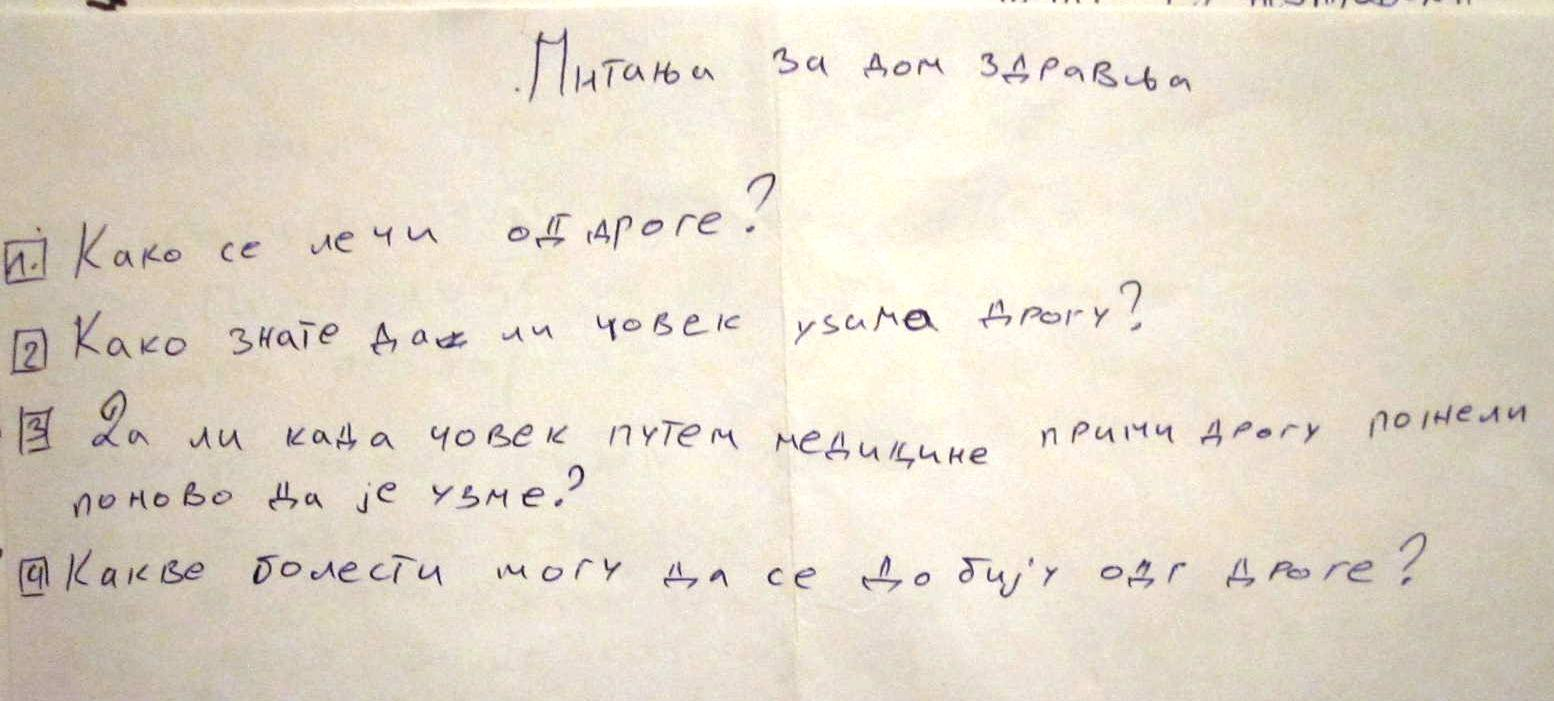 Питања за дом здравља
1. Како се лечи од дроге?
2 Како знате да ли човек узима дрогу?
3 Да ли када човек путем медицине прими дрогу пожели
поново да је узме?
4 Какве болести могу да се добију одг дроге?